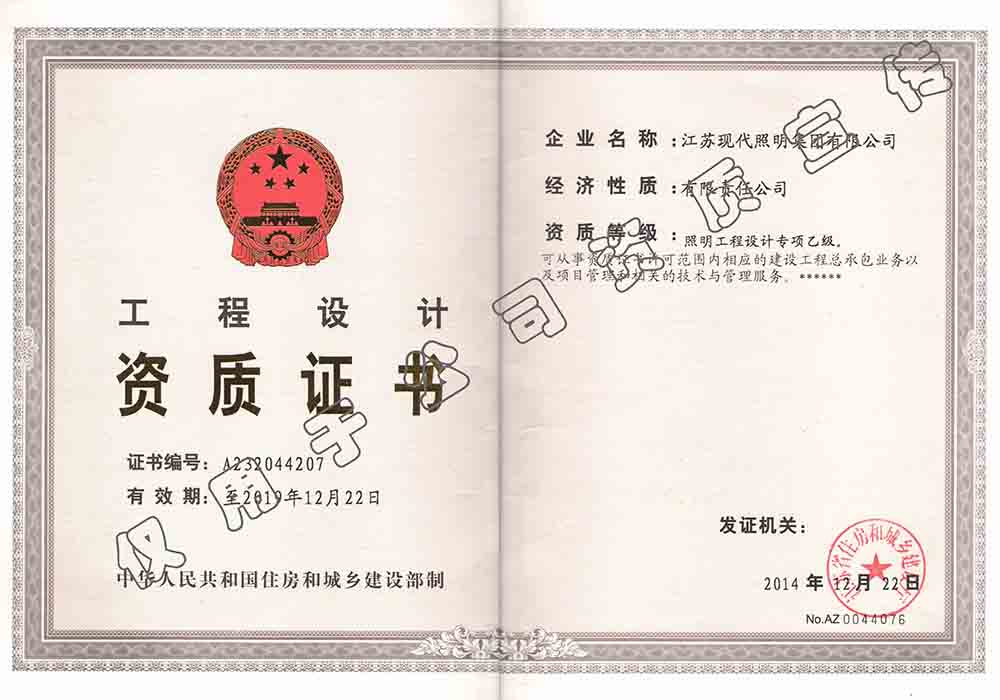 工程设计
资质证书
证书编号：A232044207
有效期：至2019年12月22日
中华人民共和国住房和城乡建设部制
企业名称：江苏现代照明集团有限公司
经济性质：有限责任公司
资质等级：照明工程设计专项乙级。
可从事资质证书许可范围内相应的建设工程总承包业务以
及项目管理和相关的技术与管理服务。******
发证机关：
江苏省住房和城乡建设厅
2014年12月22日
No.AZ 0044076
仅用于公司资质宣传